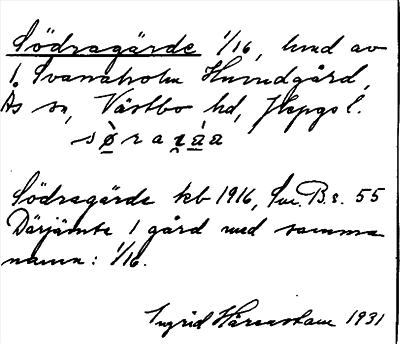 Södragärde 1/16, lund av
1 Svanaholm Huvudgård,
Ås sn, Västbo hd, Jkpgs l.
Södragärde kb 1916, Sve. B.s. 55
Därjämte 1 gård med samma
namn: 1/16.
Ingrid 1931